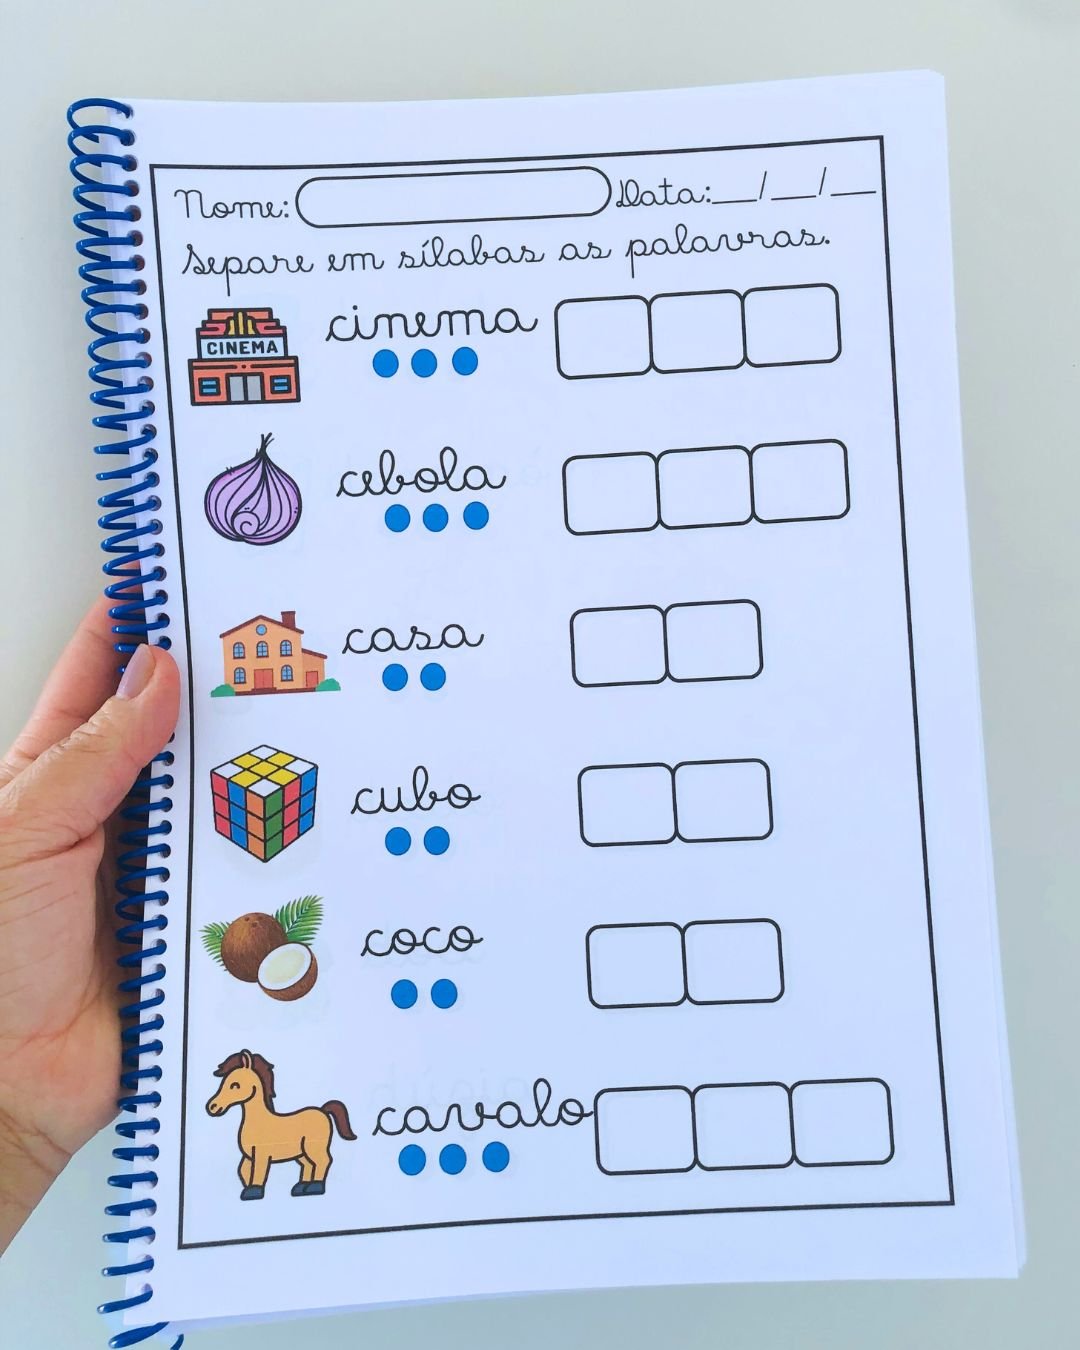 Nome: Data:__/__/__
Separe em sílabas as palavras.
CINEMA
cinema
cebola
casa
cubo
coco
cavalo